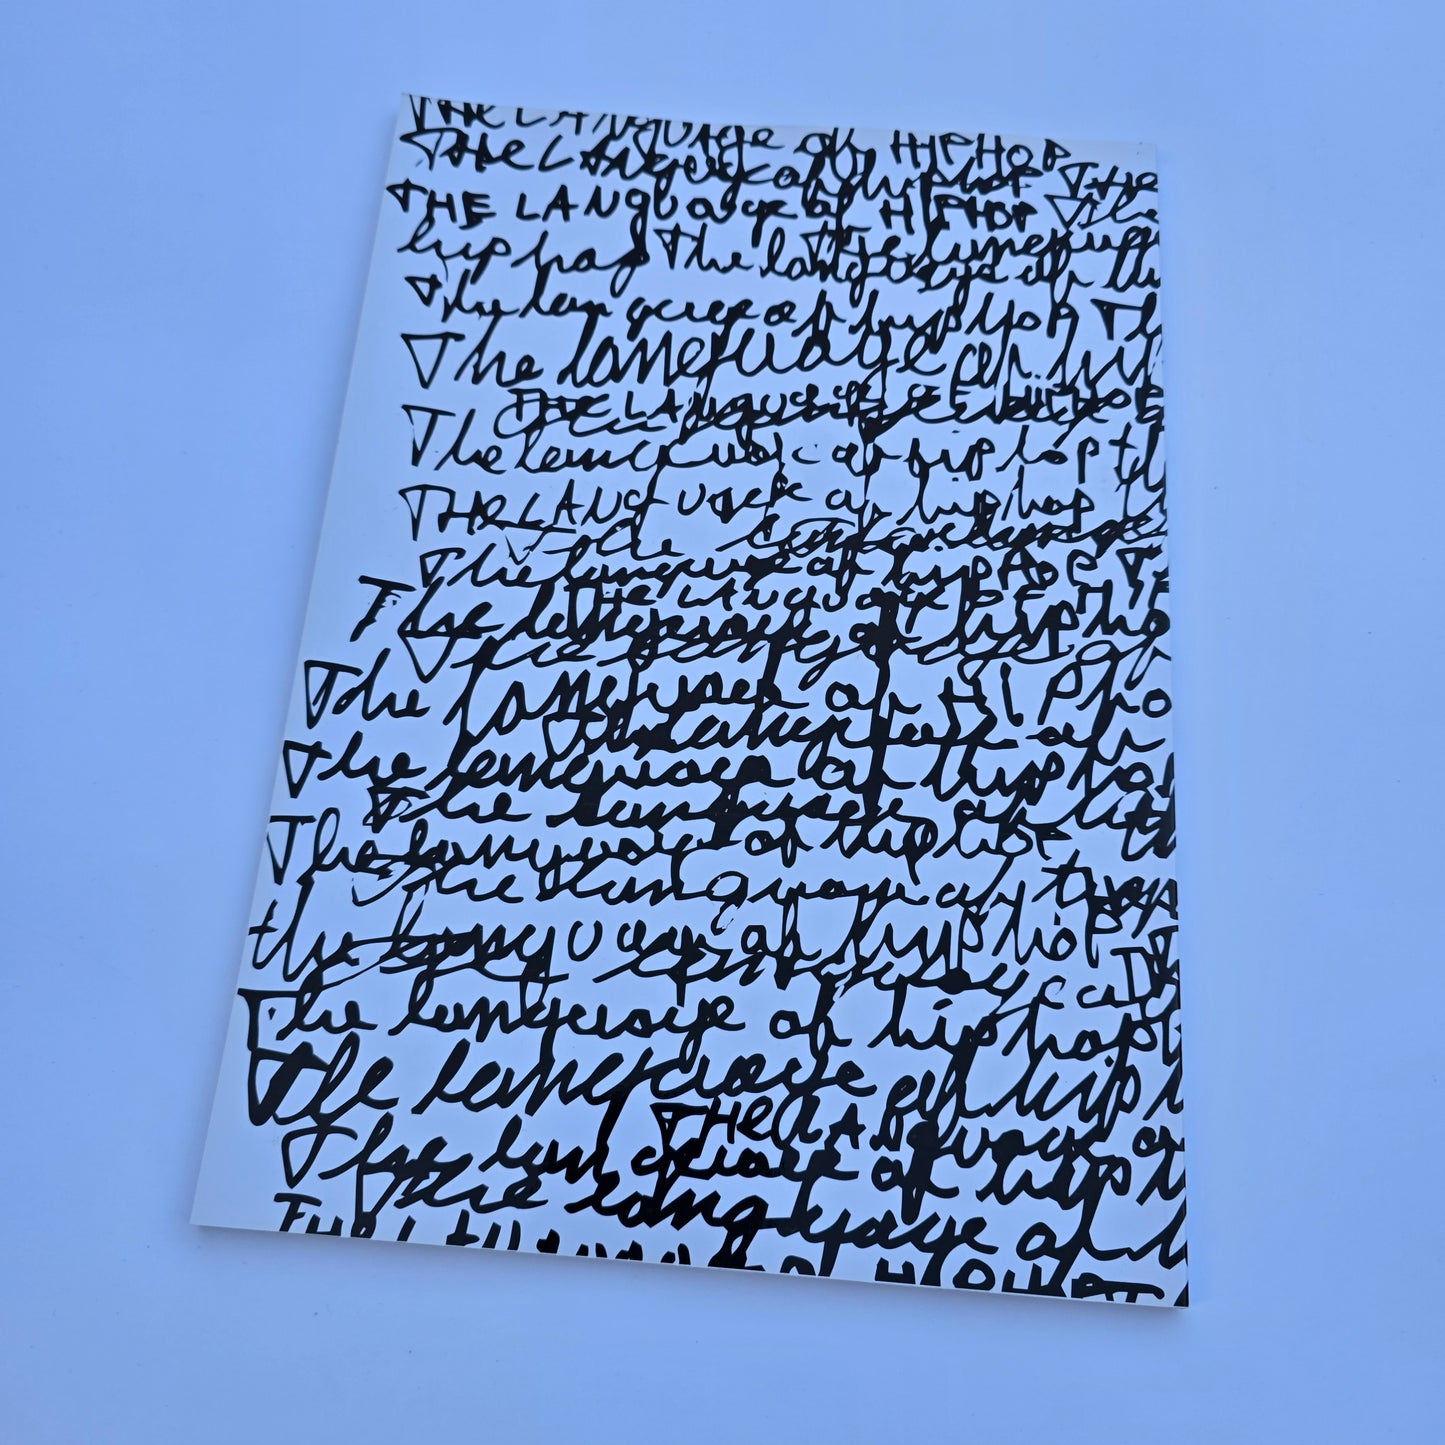 THE LANguage of HIPHOP
THE LANguage of hiphop The
THE LANguage of HIPHOP The
hip hop The language of
The language of hip Hop Th
The language of hi
THE LANGUAGE OF HIPHOP
The language of hip hop th
THE LANGuage of hip hop
The language
The language of hip HOP T
THE LANguage OF HIP
The language of hip ho
The language of
The language of HIP ho
The language of
The language of hip hop
The language of hi
The language of hip hop th
The language of
the language of hip hop
The language of hip hop
The language of hip
THe LANguage o
The language of hip
The language of h
THE HIPHOP